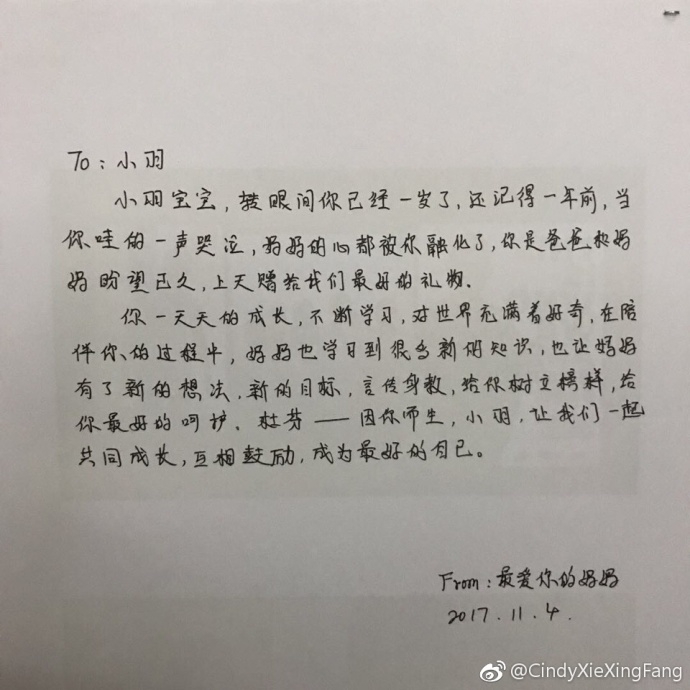 To：小羽
小羽宝宝，转眼间你已经一岁了，还记得一年前，当
你哇的一声哭泣，妈妈的心都被你融化了，你是爸爸和妈
妈盼望已久，上天赠给我们最好的礼物．
你一天天的成长，不断学习，对世界充满着好奇，在陪
伴你、的过程中，妈妈也学习到很多新的知识，也让妈妈
有了新的想法，新的目标，言传身教，给你树立榜样，给
你最好的呵护、杜芬——因你而生，小羽，让我们一起
共同成长，互相鼓励，成为最好的自己。
From：最爱你的妈妈
2017.11.4.
@CindyXieXingFang